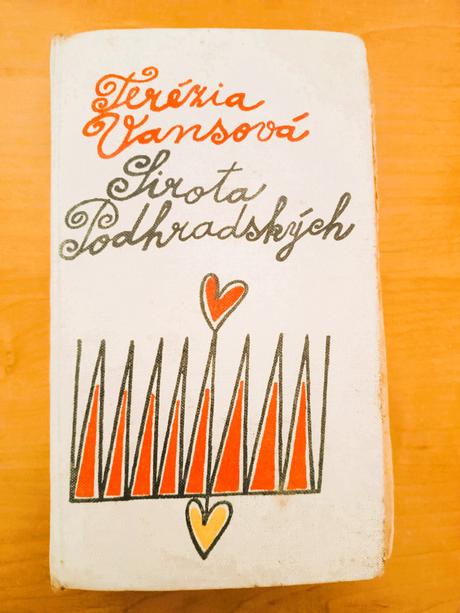 Terézia
Vansová
Sirota
Podhradských